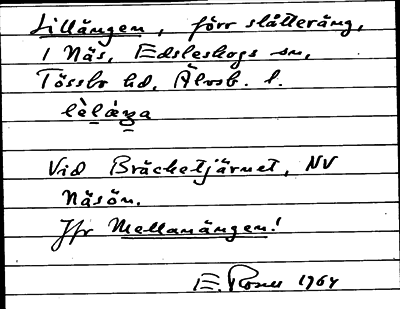 Lillängen, förr slåtteräng,
i Näs, Edsleskogs sn,
Tössbo hd, Älvsb. l.
Vid Bräcketjärnet, NV
Näsön.
Jfr Mellanängen!
E. Rosell 1964